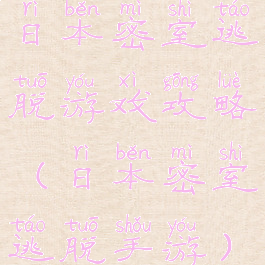 rì běn mì shì táo
日本密室逃
tuō yóu xì gōng lüè
脱游戏攻略
rì běn mì shì
（日本密室
táo tuō shǒu yóu
逃脱手游）